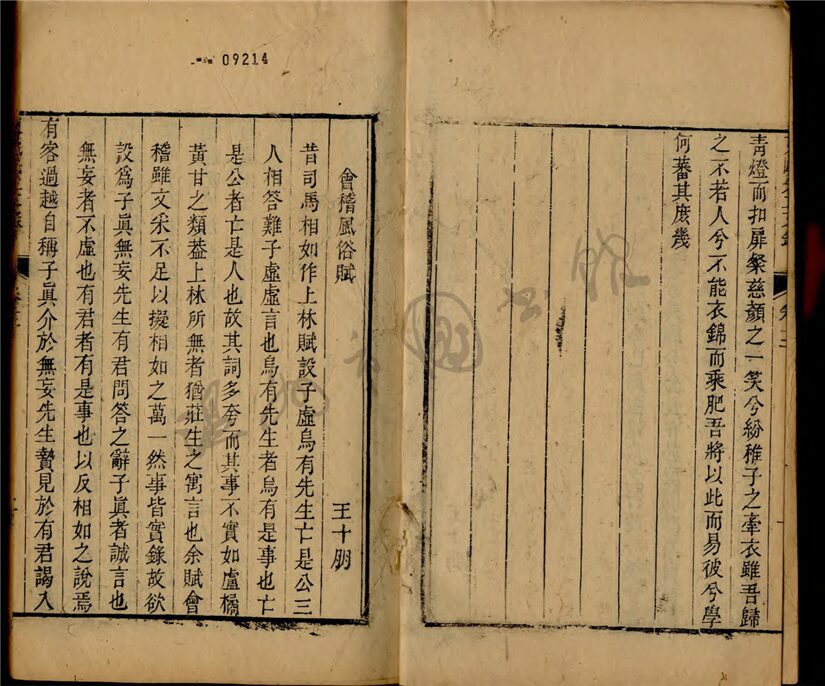 09214
青燈而扣扉粲慈顏之一笑兮紛稚子之牽衣雖吾歸
之不若人兮不能衣錦而乘肥吾將以此而易彼兮學
何蕃其庶幾
會稽風俗賦
王十朋
昔司馬相如作上林賦設子虛烏有先生亡是公三
人相答難子虛虛言也烏有先生者烏有是事也亡
是公者亡是人也故其詞多夸而其事不實如盧橘
黃甘之類葢上林所無者猶莊生之寓言也余賦會
稽雖文采不足以擬相如之萬一然事皆實錄故欲
設爲子眞無妄先生有君問答之辭子眞者誠言也
無妄者不虛也有君者有是事也以反相如之說焉
有客過越自稱子眞介於無妄先生贄見於有君謁入